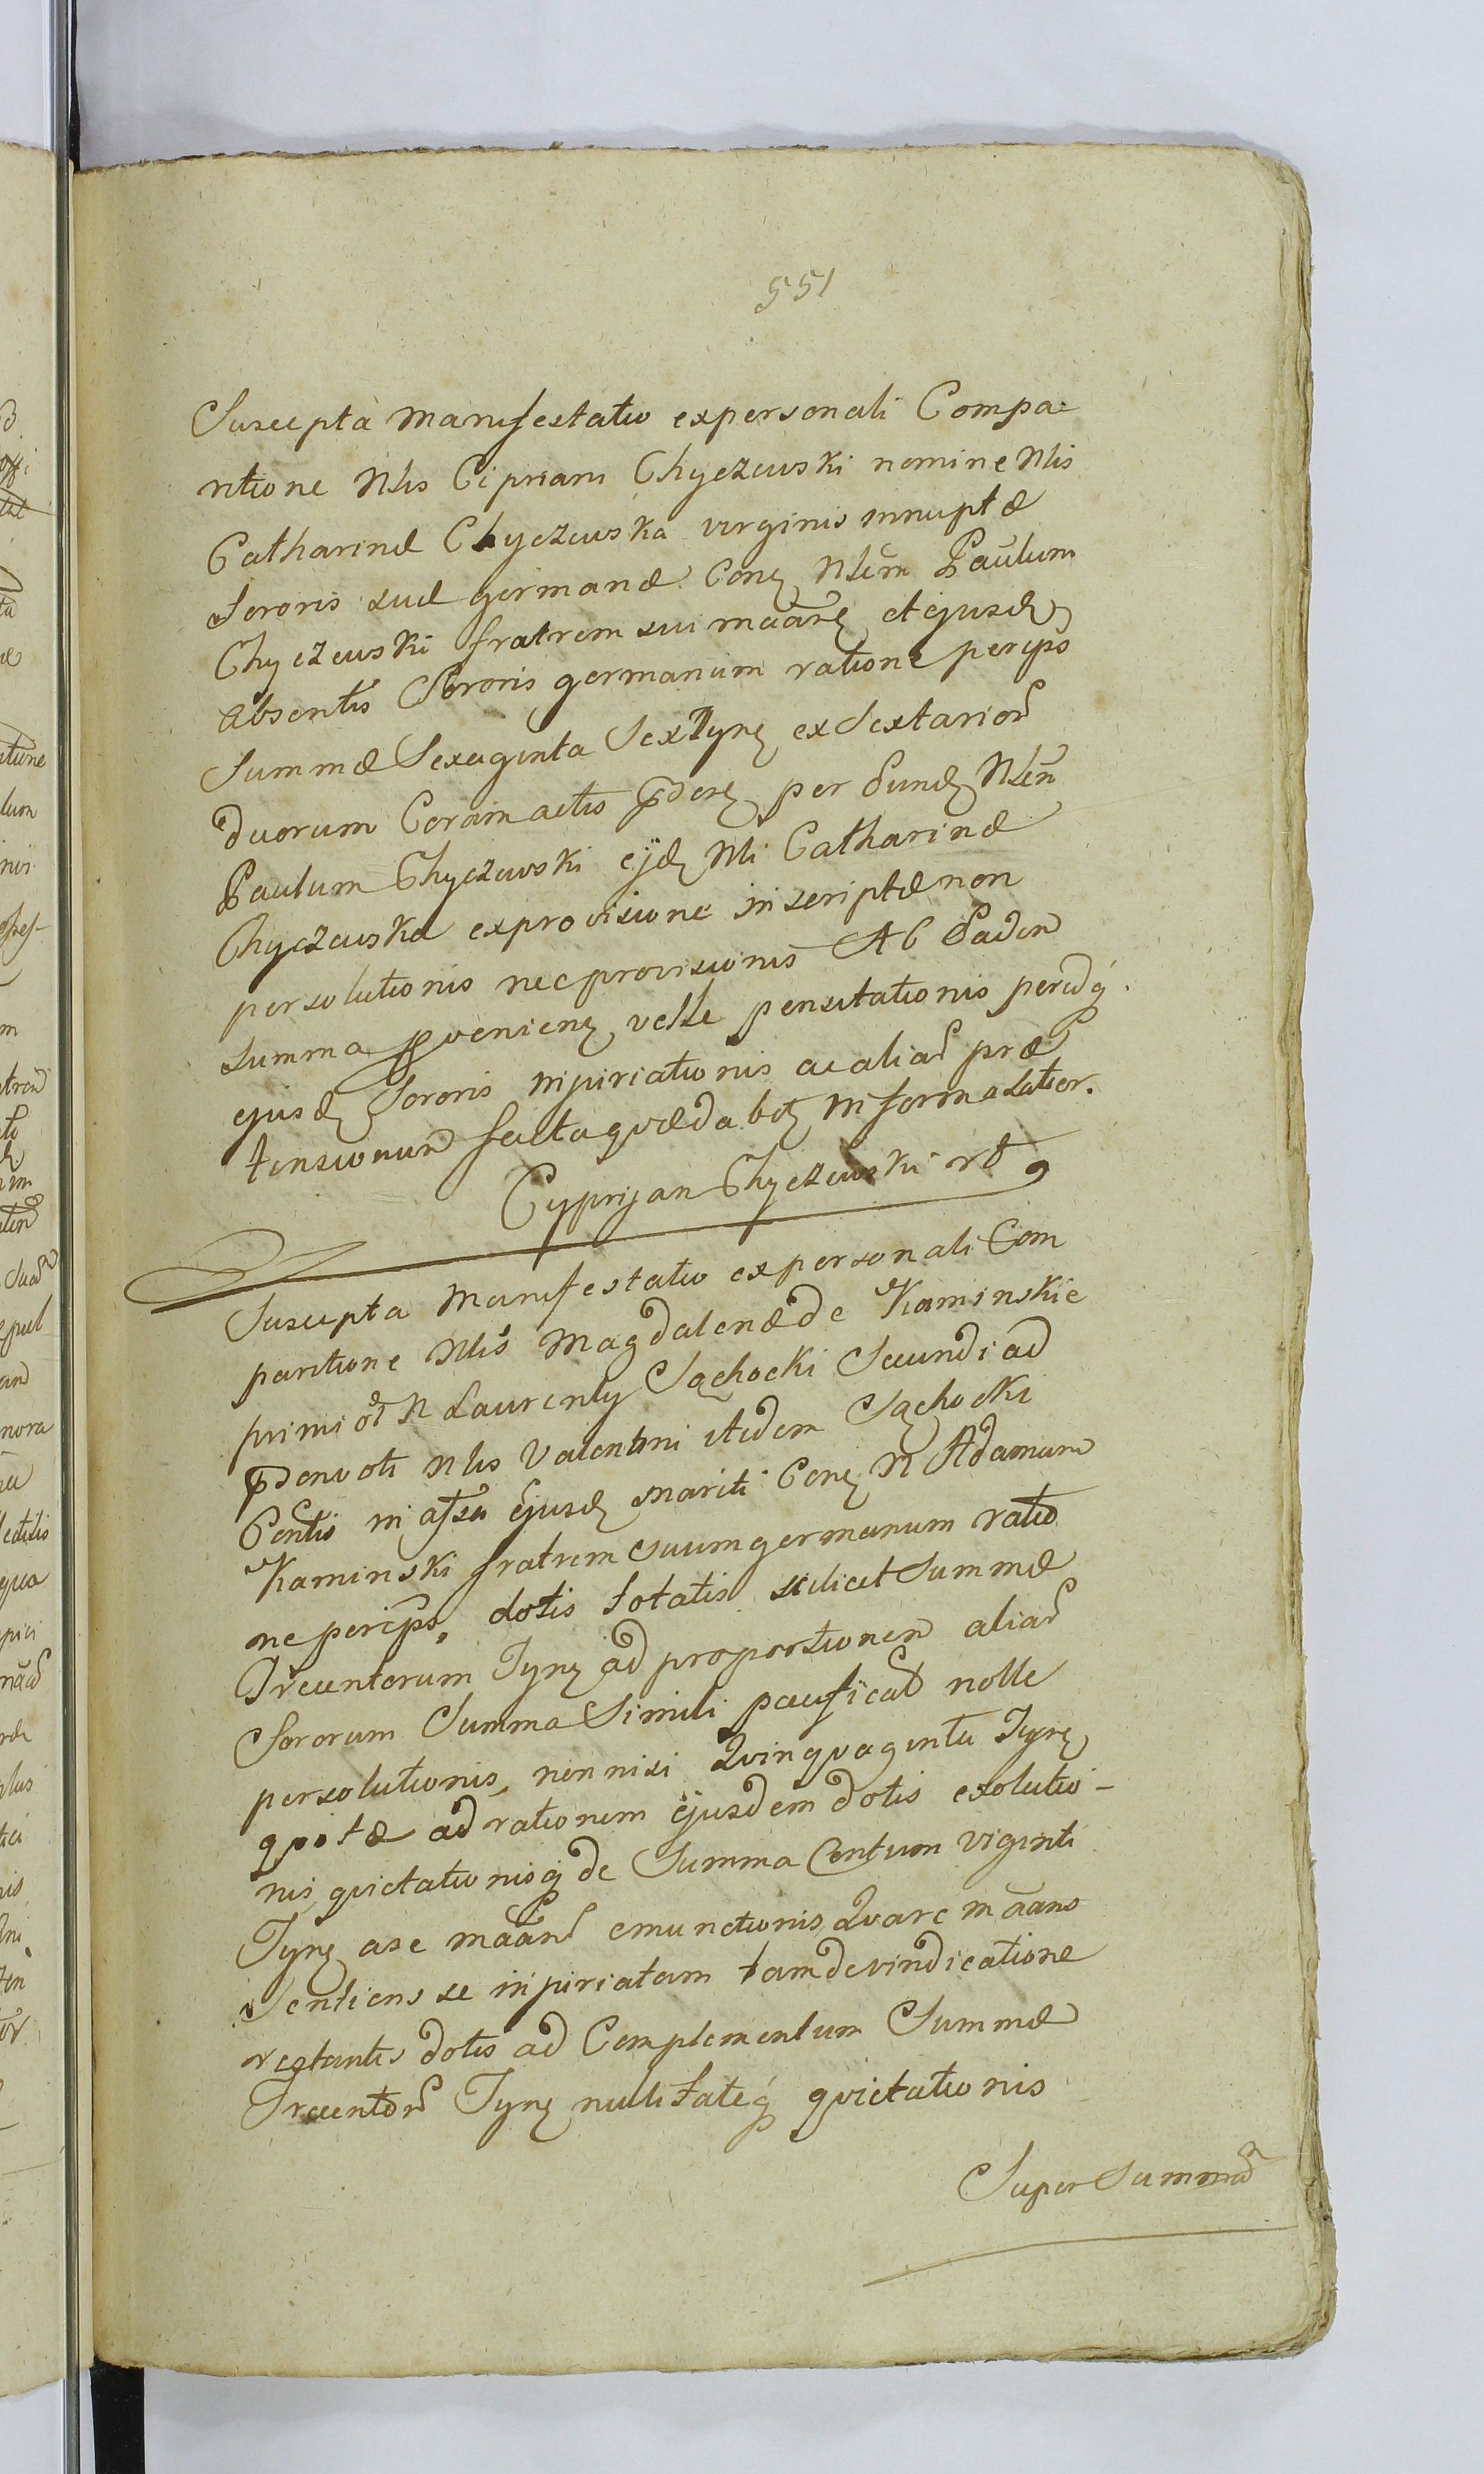 551
Suscepta Manifestatio expersonali Compa=
ritione Nlis Cipriani Chyczewski nomine Nlis
Catharinæ Chyczewska virginis innuptæ
Sororis suæ germanæ Con͞ Nlem Paulum
Chyczewski fratrem sui maan͞ et ejusd͞
absentis Sororis germanum ratione per ipso
Summæ Sexaginta Sex Tyn͞ ex Sextarior͞
duorum Coram actis p͞den͞ per Eund͞ Nlen͞
Paulum Chyczewski eijd͞ Nli Catharinæ
Chyczewska exprovisione inscriptæ non
persolutionis nec provisionis Ab Eadem
summa p͞venien͞ velle pensitationis peridq́.
ejusd͞ Sororis injuriationis ac aliar͞ præ
tensionum facta quæ dabt͞ in forma latior.
Cyprijan Chyczewski
Suscepta Manifestatio expersonali Com
paritione Nlis Magdalenæ de Kaminskie
primi N Laurenty Sąchocki Secundi ad
p͞dens voti Nlis Valentini itidem Sąchocki
Con͞tis in ejusd͞ Mariti Con͞ N Adamum
Kaminski fratrem suum germanum ratio
ne per ipso, dotis totalis scilicet Summæ
Trecentorum Tyn͞ ad proportionem aliar͞
Sororum Summa Simili nolle
persolutionis, non nisi Qvinqvaginta Tyn͞
ad rationem ejusdem dotis exolutio-
nis qvietationisq́ de Summa Centum viginti
Tyn͞ a se maan͞ emunctionis Qvare māans
Sentiens se injuriatam tam de vindicatione
restantis dotis ad Complementum Summæ
Trecentor͞ Tyn͞ nullitateq́ qvietationis
Super Summa͞